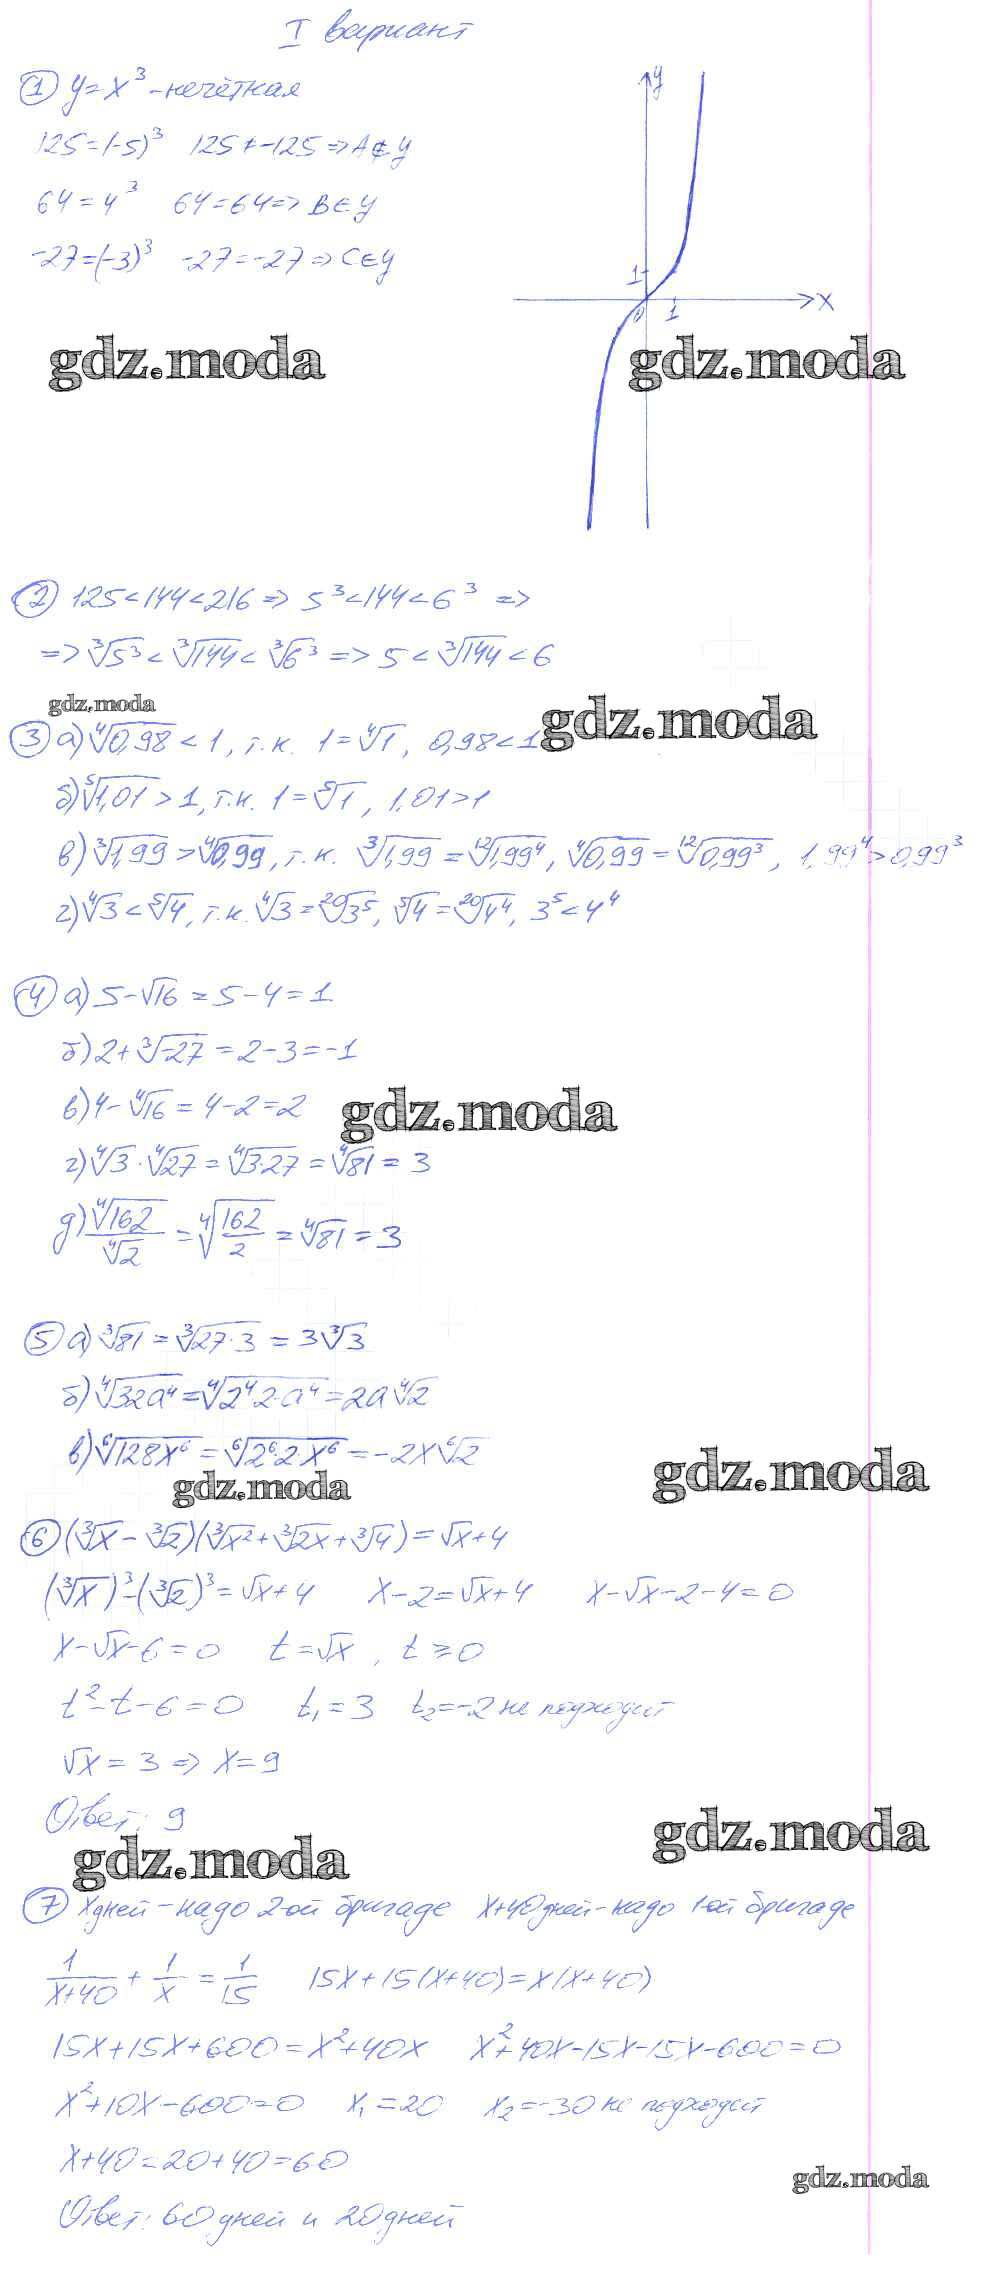 I вариант
① y=x³ - нечётная
125=(-5)³ 125≠-125 => A∉y
64=4³ 64=64 => B∈y
-27=(-3)³ -27=-27 => C∈y
y
1
0 1 x
gdz.moda gdz.moda
② 125<144<216 => 5³<144<6³ =>
=> ∛5³ < ∛144 < ∛6³ => 5 < ∛144 < 6
gdz.moda gdz.moda
③ а) ⁴√0,98 < 1, т.к. 1 = ⁴√1, 0,98<1
б) ⁵√1,01 > 1, т.к. 1 = ⁵√1, 1,01>1
в) ∛1,99 > ⁴√0,99, т.к. ∛1,99 = ¹²√1,99⁴, ⁴√0,99 = ¹²√0,99³, 1,99⁴ > 0,99³
г) ⁴√3 < ⁵√4, т.к. ⁴√3 = ²⁰√3⁵, ⁵√4 = ²⁰√4⁴, 3⁵ < 4⁴
④ а) 5-√16 = 5-4 = 1
б) 2+∛-27 = 2-3 = -1
в) 4-⁴√16 = 4-2 = 2
gdz.moda
г) ⁴√3 · ⁴√27 = ⁴√3·27 = ⁴√81 = 3
д) ⁴√162/⁴√2 = ⁴√162/2 = ⁴√81 = 3
⑤ а) ∛81 = ∛27·3 = 3∛3
б) ⁴√32a⁴ = ⁴√2⁴·2·a⁴ = 2a⁴√2
в) ⁶√128x⁶ = ⁶√2⁶·2·x⁶ = -2x⁶√2
gdz.moda gdz.moda
⑥ (∛x - ∛2)(∛x² + ∛2x + ∛4) = √x+4
(∛x)³-(∛2)³ = √x+4 x-2 = √x+4 x-√x-2-4=0
x-√x-6=0 t=√x, t≥0
t²-t-6=0 t₁=3 t₂=-2 не подходит
√x = 3 => x=9
Ответ: 9
gdz.moda gdz.moda
⑦ x дней - надо 2-ой бригаде x+40 дней - надо 1-ой бригаде
1/(x+40) + 1/x = 1/15 15x+15(x+40)=x(x+40)
15x+15x+600=x²+40x x²+40x-15x-15x-600=0
x²+10x-600=0 x₁=20 x₂=-30 не подходит
x+40=20+40=60
gdz.moda
Ответ: 60 дней и 20 дней